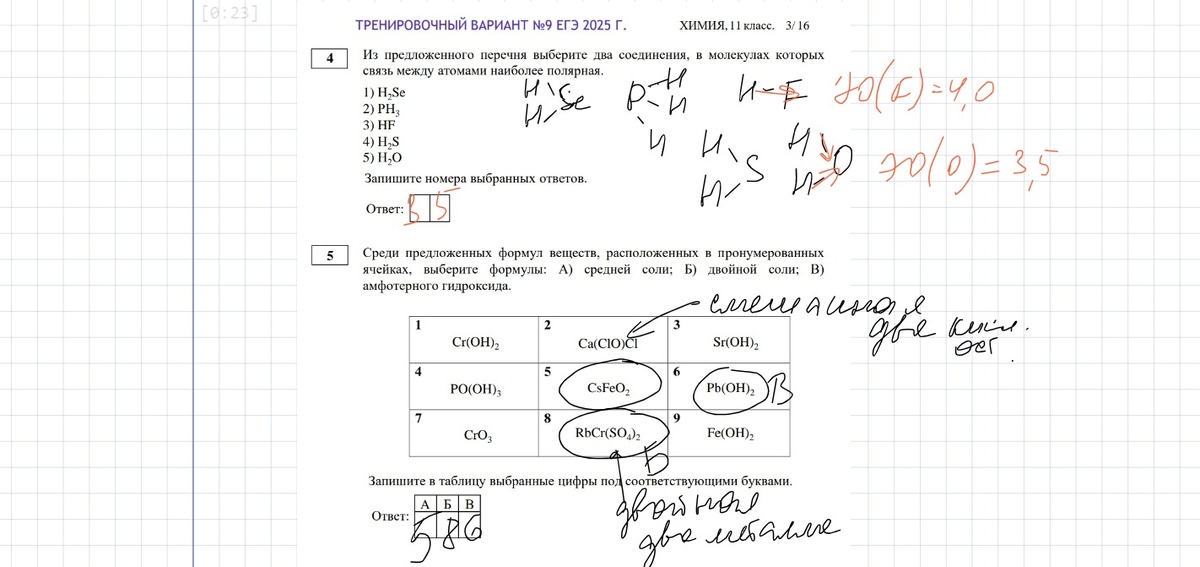 [0:23]
ТРЕНИРОВОЧНЫЙ ВАРИАНТ №9 ЕГЭ 2025 Г. ХИМИЯ, 11 класс. 3/ 16
4 Из предложенного перечня выберите два соединения, в молекулах которых
связь между атомами наиболее полярная.
1) H₂Se
2) PH₃
3) HF
4) H₂S
5) H₂O
H H Se
P H H H
H-F
ЭО(F)=4,0
H H S
H H O
ЭО(O)=3,5
Запишите номера выбранных ответов.
Ответ: 3 5
5 Среди предложенных формул веществ, расположенных в пронумерованных
ячейках, выберите формулы: А) средней соли; Б) двойной соли; В)
амфотерного гидроксида.
смешанная
две кисл.
ост.
1 Cr(OH)₂ 2 Ca(ClO)Cl 3 Sr(OH)₂
4 PO(OH)₃ 5 CsFeO₂ 6 Pb(OH)₂ В
7 CrO₃ 8 RbCr(SO₄)₂ 9 Fe(OH)₂
Б
Запишите в таблицу выбранные цифры под соответствующими буквами.
А Б В
Ответ: 5 8 6
двойная
два металла